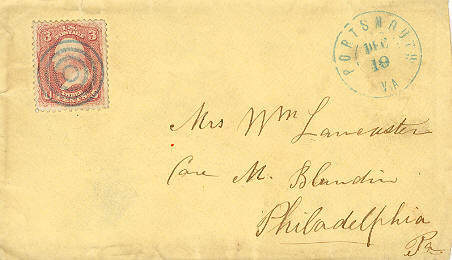 3 U.S. 3
POSTAGE
PORTSMOUTH
DEC
19
VA
Mrs Wm Lancaster
Care M. Blandin
Philadelphia
Pa